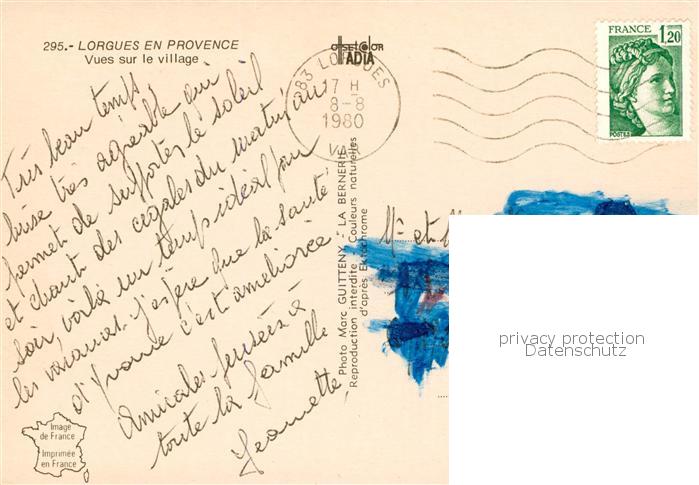 295.- LORGUES EN PROVENCE
Vues sur le village
ADIA
83 LORGUES
17 H
8-8
1980
VAR
FRANCE
1,20
POSTES
Très beau temps,
brise très agréable qui
permet de supporter le soleil
et chant des cigales du matin au
soir, voilà un temps idéal pour
les vacances. J'espère que la santé
d'Yvonne s'est améliorée
Amicales pensées à
toute la famille
Jeannette
Photo Marc GUITTENY - LA BERNERIE
Reproduction interdite Couleurs naturelles
d'après Ektachrome
Mr et M
Image
de France
Imprimée
en France
privacy protection
Datenschutz